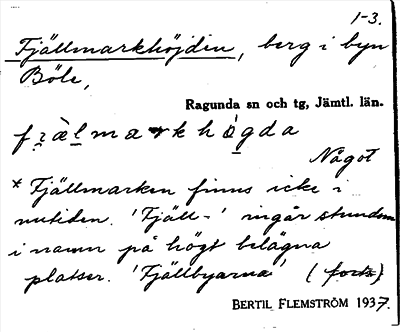 1-3.
Fjällmarkhöjden, berg i byn
Böle,
Ragunda sn och tg, Jämtl. län.
fjä̀lmarkhö́gda
Något
* Fjällmarken finns icke i
nutiden. 'Fjäll-' ingår stundom
i namn på högt belägna
platser. 'Fjällbyarna' (forts)
BERTIL FLEMSTRÖM 1937.